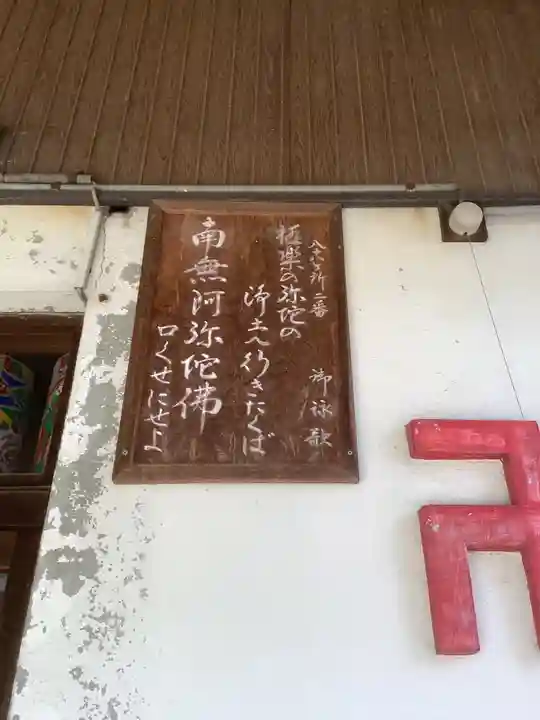 八十八ヶ所二番　御詠歌
極楽の弥陀の
浄土へ行きたくば
南無阿弥陀佛
口くせにせよ